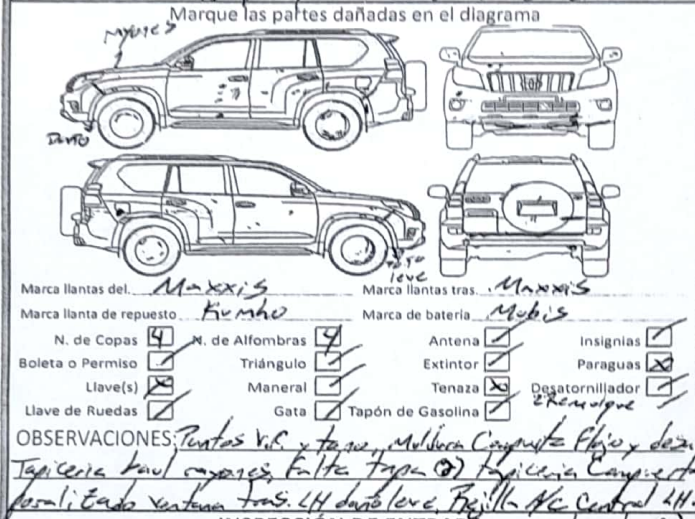 Marque las partes dañadas en el diagrama
Rayones
Daño
leve
Marca llantas del. Maxxis Marca llantas tras. Maxxis
Marca llanta de repuesto Kumho Marca de batería Mobis
N. de Copas 4 N. de Alfombras 4 Antena Insignias
Boleta o Permiso Triángulo Extintor Paraguas X
Llave(s) X Maneral Tenaza X Desatornillador
Llave de Ruedas Gata Tapón de Gasolina 2 Remolque
OBSERVACIONES: Puntos V.R. y Moldura Compuerta Flojo y
Tapiceria baul rayones, Falta tapa (2) tapiceria Compuerta
ventana tras. LH daño leve, Rejilla A/C Central LH